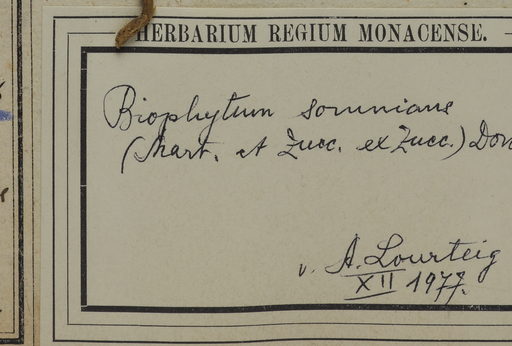 HERBARIUM REGIUM MONACENSE.
Biophytum somnians
(Mart. et Zucc. ex Zucc.) Don
v. A. Lourteig
XII 1977.